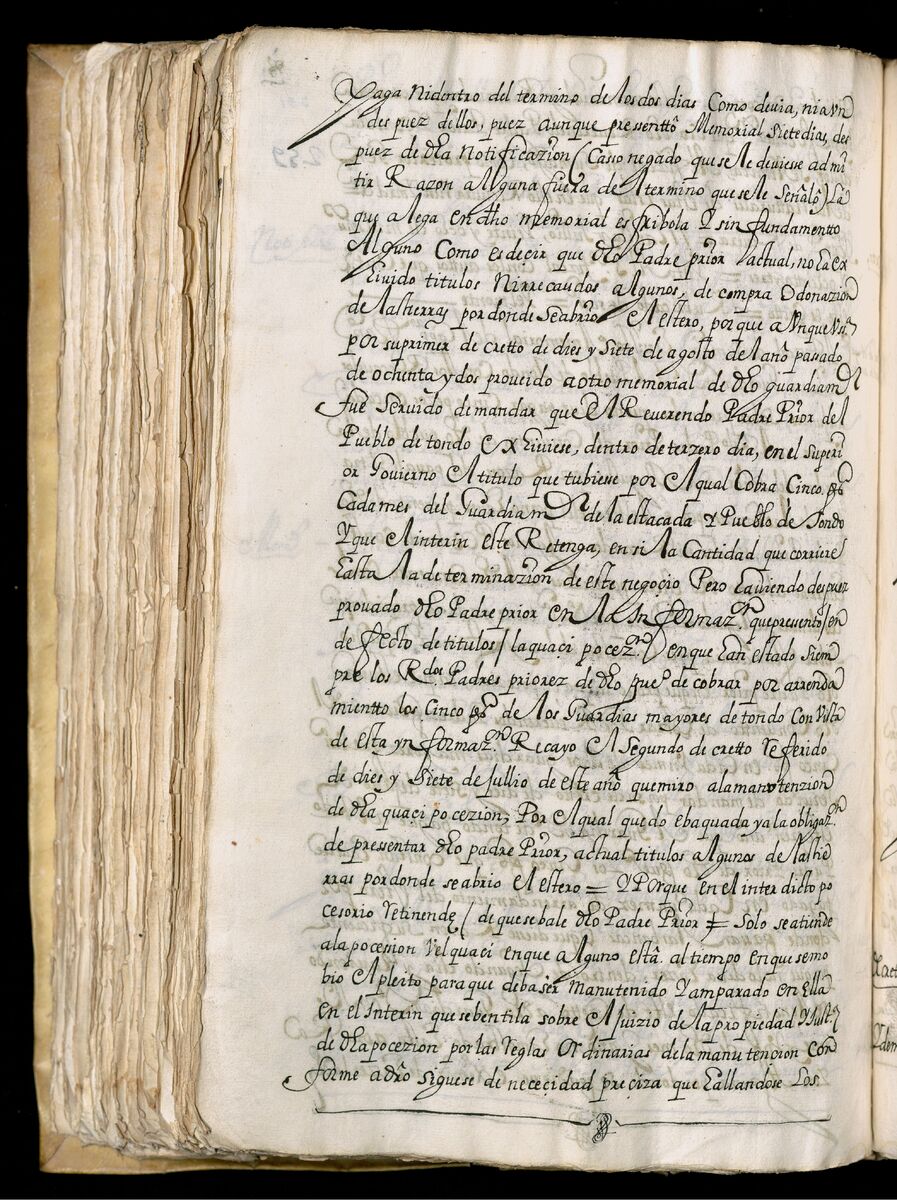 Paga ni dentro del termino de los dos dias Como devia, ni aun
des puez dellos, puez aunque pressentto Memorial siete dias, des
puez de dha Notificazion (Casso negado que se le deviese admi
tir Razon alguna fuera del termino que se le señaló) La
que alega en dho memorial es fribola Y sin fundamentto
Alguno Como es deçir que dho Padre prior actual, no ha ex
hivido titulos Nirrecaudos algunos, de compra O donazion
de las tierras por donde se abrio el estero, por que a Vnque
por su primer de cretto de dies y siete de agosto del año passado
de ochenta y dos proveido a otro memorial de dho guardiam
fue servido de mandar que El Reverendo Padre Prior del
Pueblo de tondo Exhiviese, dentro de terzero dia, en el superi
or Govierno el titulo que tubiese por el qual Cobra Cinco ps
Cada mes del Guardiam de la estacada y Pueblo de Tondo
Y que el interin este Retenga, en si la Cantidad que corriere
hasta la determinazion de este negoçio Pero haviendo despuez
provado dho Padre prior en la In formazn que presento (en
de fecto de titulos) la quaçi pocezn en que han estado siem
pre los Rdos Padres priorez de dho pueo de cobrar por arrenda
mientto los Cinco ps de los Guardias mayores de tondo Con Vista
de esta yn formazn Recayo el segundo de cretto referido
de dies y siete de Jullio de este año que miro a la manvtenzion
de dha quaçi pocezion, Por el qual quedo ebaquada ya la obligazn
de pressentar dho padre Prior, actual titulos algunos de las tie
rras por donde se abrio el estero = Y Porque en el inter dicto po
cesorio retinende (de que se bale dho Padre Prior = Solo se atiende
a la pocesion Vel quaci en que alguno está al tiempo en que se mo
bio el pleito para que deba ser manutenido Y amparado en Ella
en el Interin que se bentila sobre el Juizio de la propiedad
de dha pocezion por las reglas Ordinarias de la manutencion Con
forme a dro siguese de nececidad preçiza que hallandose Los